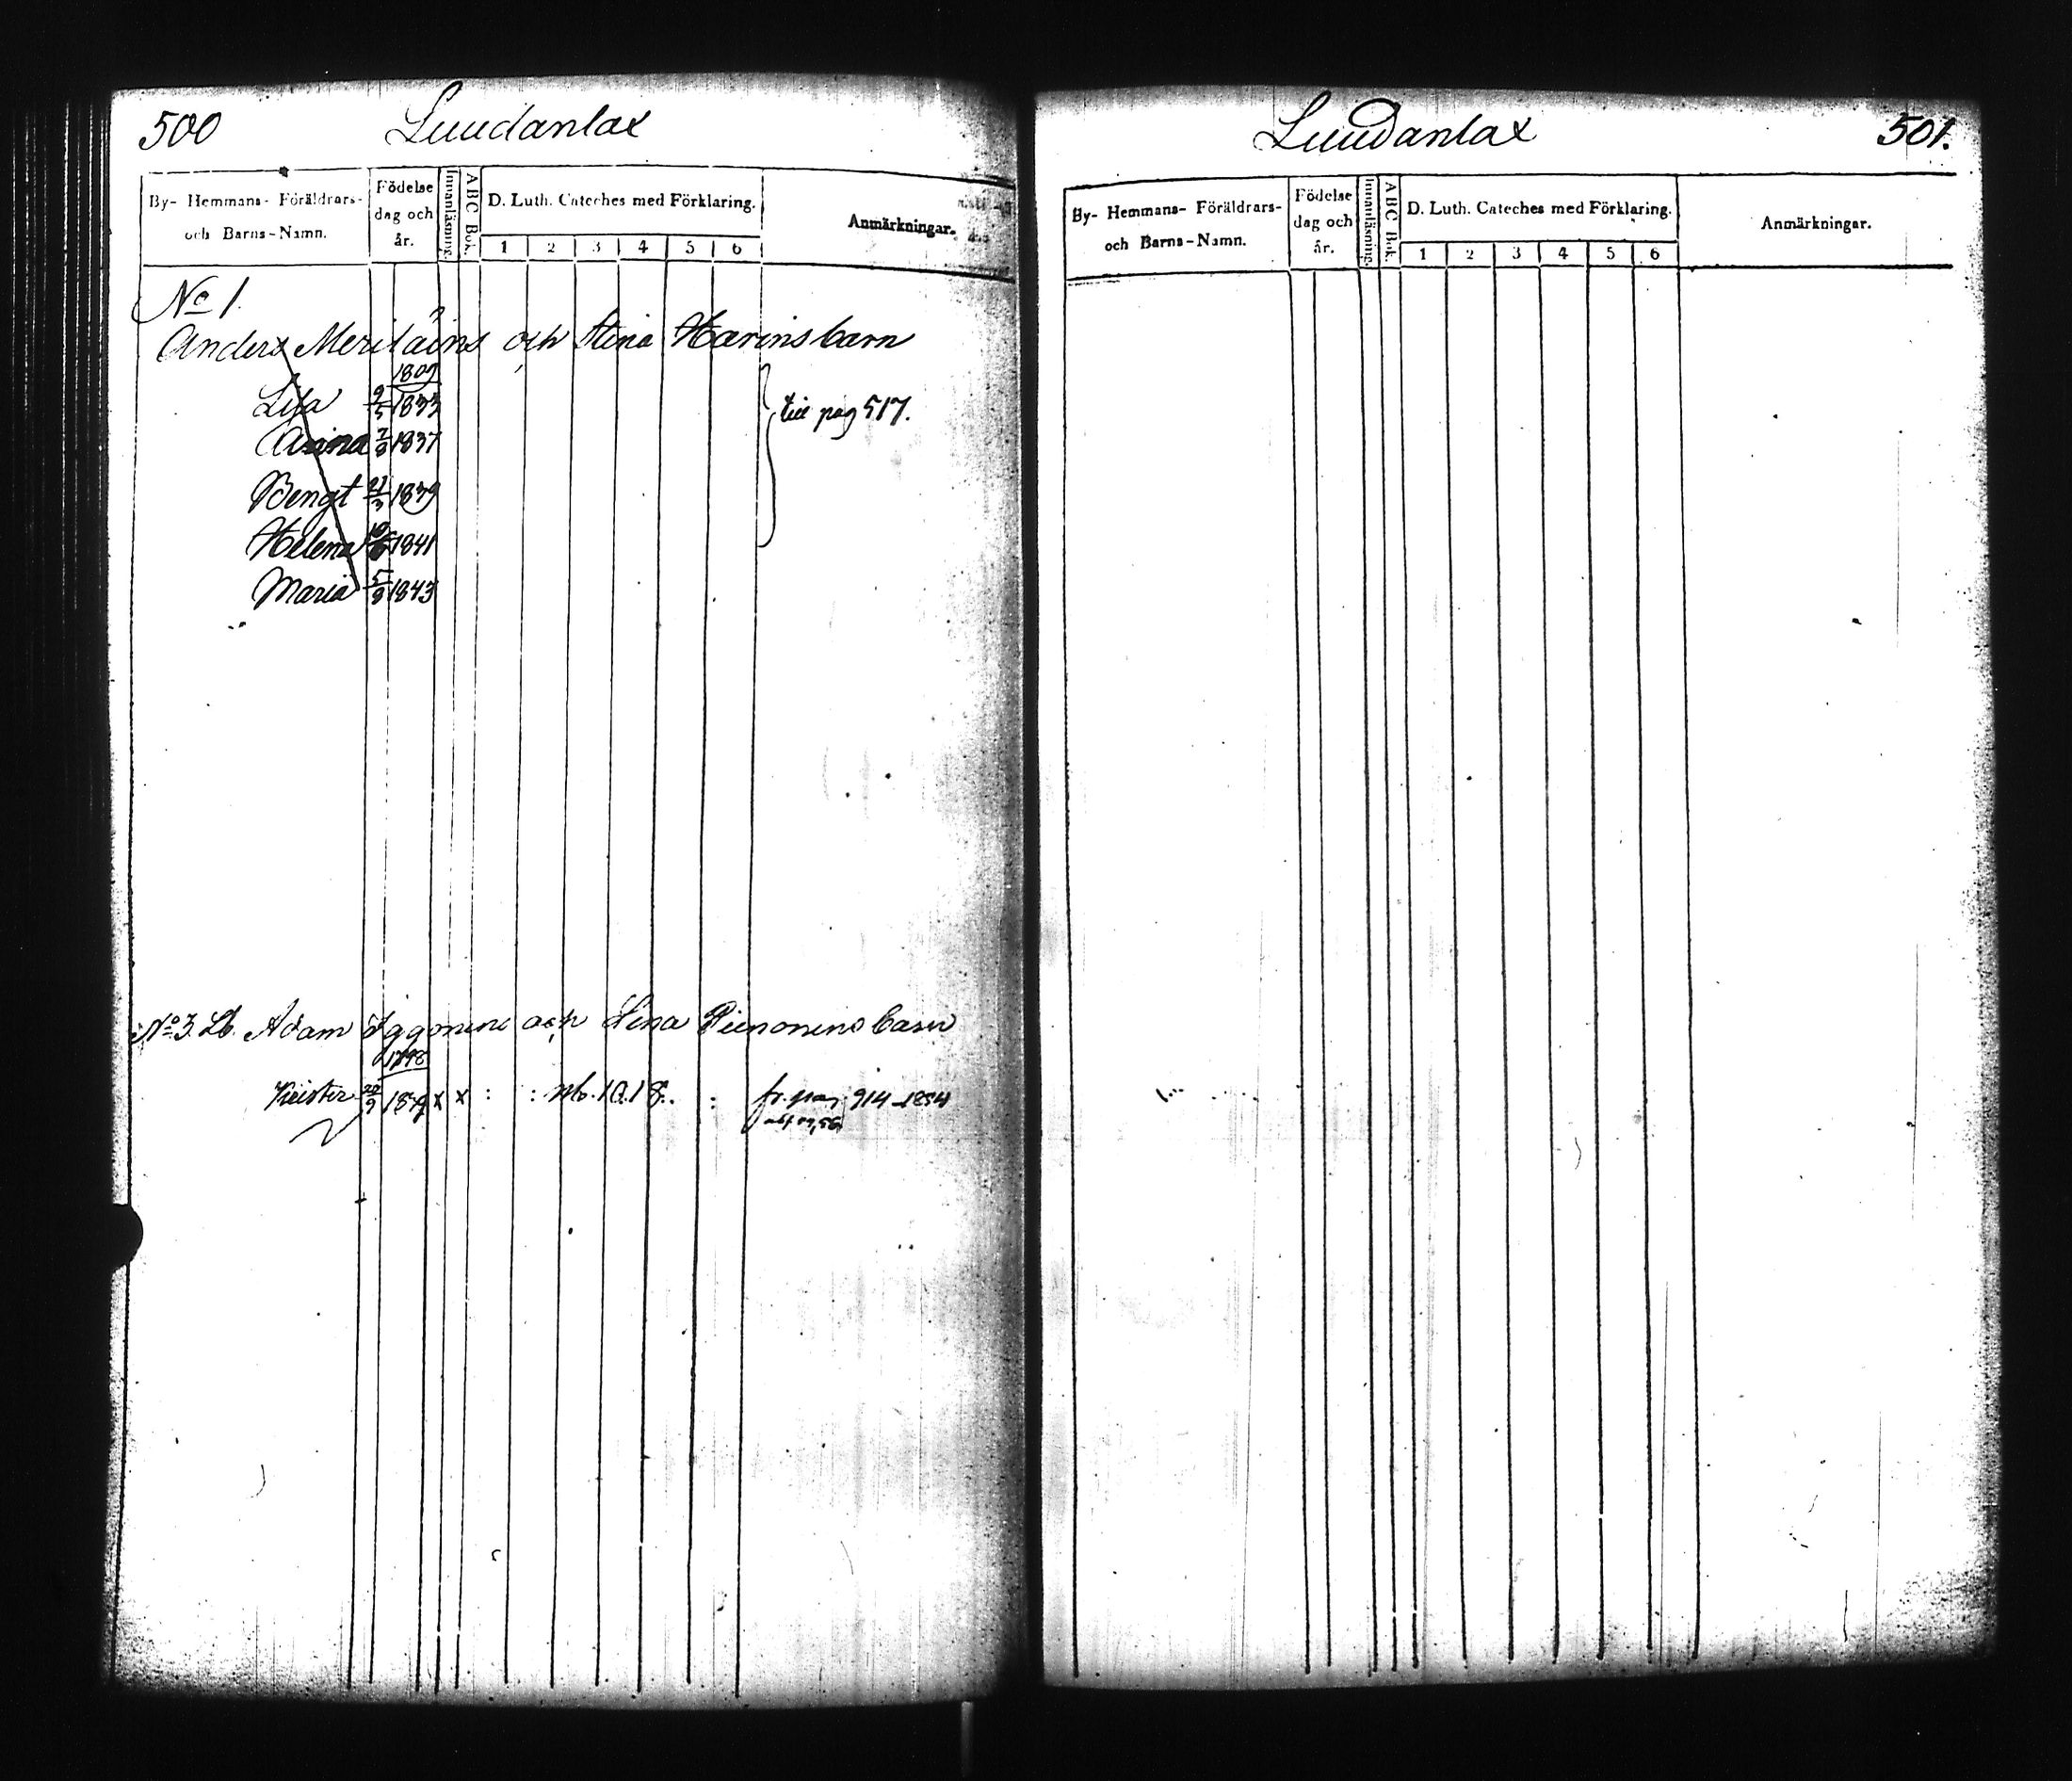 500 Luudanlax
By- Hemmans- Föräldrars- och Barns-Namn.
Födelse dag och år.
Innanläsning.
ABC Bok.
D. Luth. Cateches med Förklaring.
1 2 3 4 5 6
Anmärkningar.
No 1.
Anders Meriläins och Stina Harins barn
1809
Lisa 9/5 1833 till pag 517.
Anna 7/8 1837
Bengt 21/3 1839
Helena 1841
Maria 5/8 1843
No 3. Lb. Adam Iggonens och Lena Piironens barn
1798
Krister 20/9 x x : : fr. pag. 914 1854
Luudanlax 501.
By- Hemmans- Föräldrars- och Barns-Namn.
Födelse dag och år.
Innanläsning.
ABC Bok.
D. Luth. Cateches med Förklaring.
1 2 3 4 5 6
Anmärkningar.